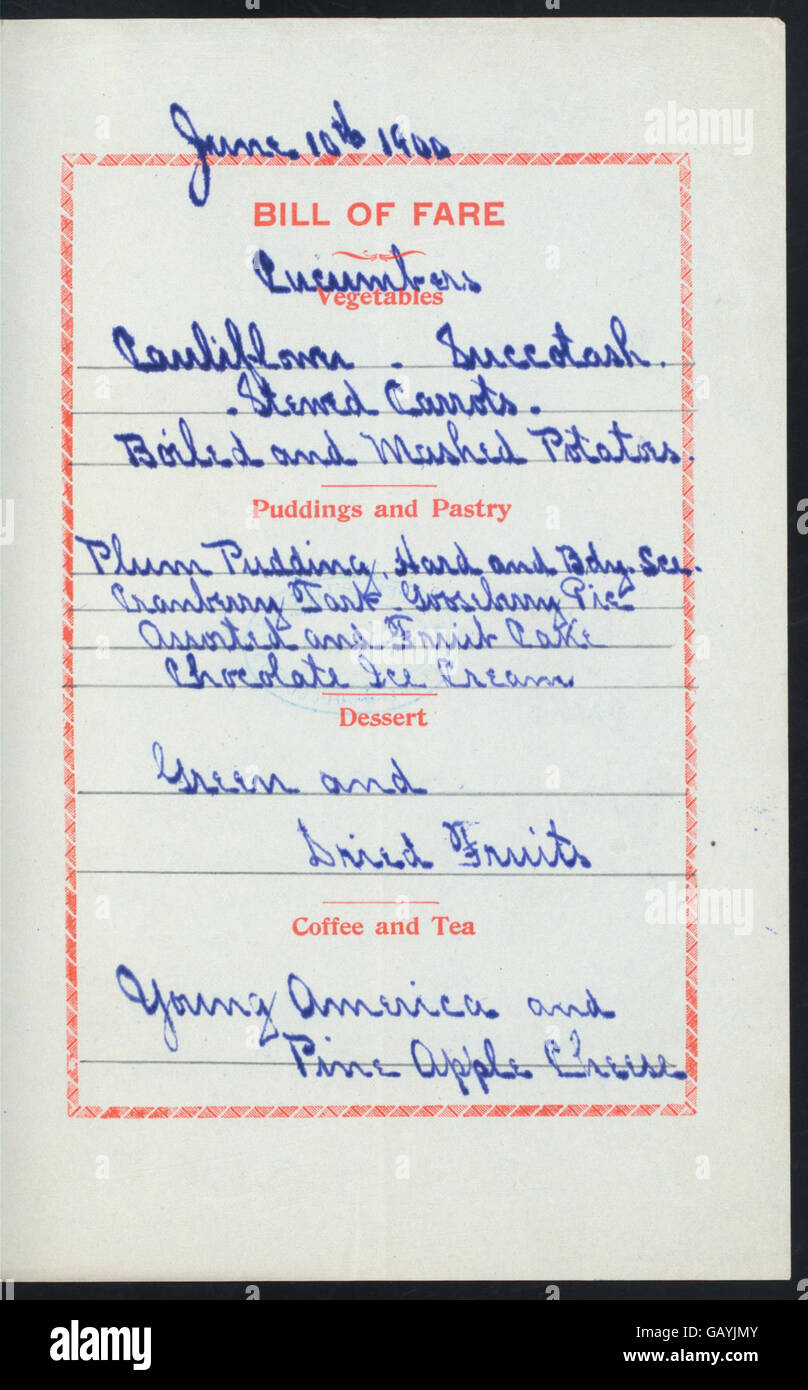 June 10th 1900
BILL OF FARE
Cucumbers
Vegetables
Cauliflower - Succotash.
- Stewed Carrots -
Boiled and Mashed Potatoes.
Puddings and Pastry
Plum Pudding, Hard and Bdy. Sce.
Cranberry Tart Gooseberry Pie
Assorted and Fruit Cake
Chocolate Ice Cream
Dessert
Green and
Dried Fruits
Coffee and Tea
Young America and
Pine Apple Cheese
alamy
alamy
a
alamy stock photo
GAYJMY
www.alamy.com